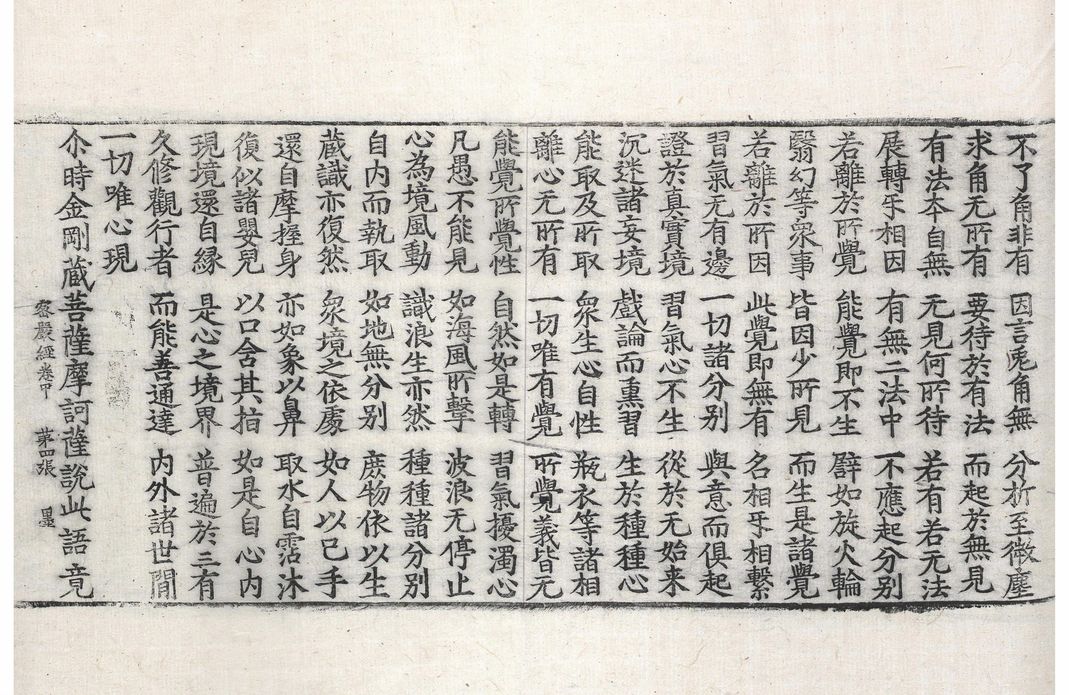 不了角非有 因言兎角無 分析至微塵
求角无所有 要待於有法 而起於無見
有法本自無 无見何所待 若有若无法
展轉㸦相因 有無二法中 不應起分別
若離於所覺 能覺即不生 譬如旋火輪
翳幻等衆事 皆因少所見 而生是諸覺
若離於所因 此覺即無有 名相㸦相繫
習氣无有邊 一切諸分別 與意而俱起
證於真實境 習氣心不生 從於无始来
沉迷諸妄境 戲論而熏習 生於種種心
能取及所取 衆生心自性 瓶衣等諸相
離心无所有 一切唯有覺 所覺義皆无
能覺所覺性 自然如是轉 習氣擾濁心
凡愚不能見 如海風所擊 波浪无停止
心為境風動 識浪生亦然 種種諸分別
自内而執取 如地無分別 庶物依以生
蔵識亦復然 衆境之依處 如人以己手
還自摩握身 亦如象以鼻 取水自霑沐
復似諸嬰兒 以口含其指 如是自心内
現境還自縁 是心之境界 普遍於三有
久修觀行者 而能善通達 内外諸世間
一切唯心現
尒時金剛蔵菩薩摩訶薩說此語竟
密嚴經卷中 第四張 墨